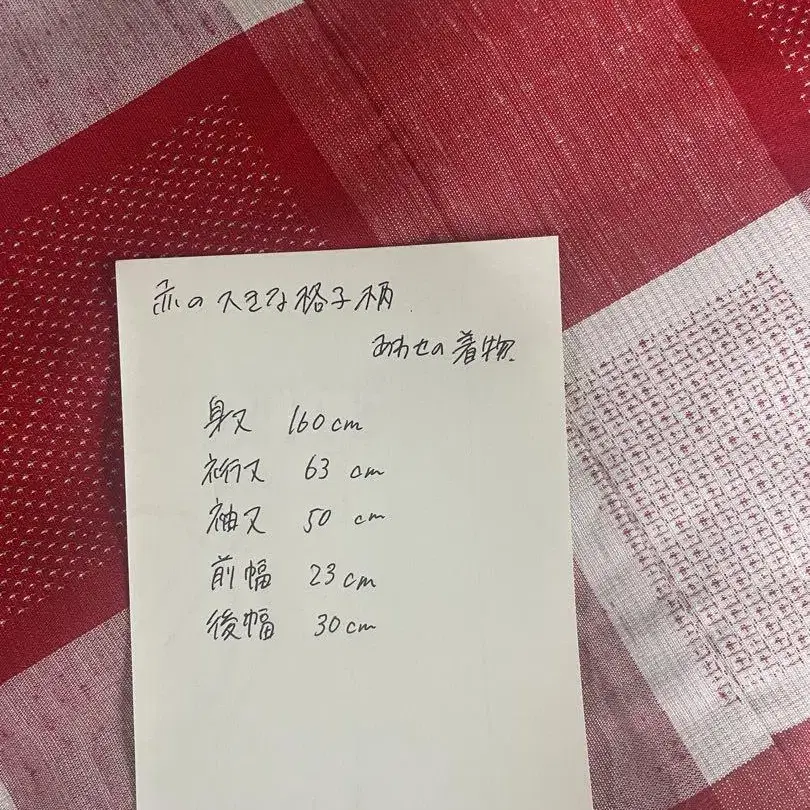 赤の大きな格子柄
あわせの着物.
身丈 160cm
裄丈 63 cm
袖丈 50 cm
前幅 23cm
後幅 30cm